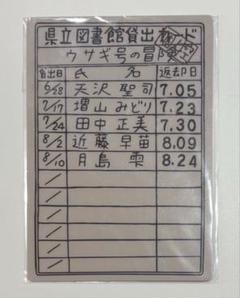 県立図書館貸出カード
ウサギ号の冒険
貸出日 氏名 返却日
6/28 天沢聖司 7.05
7/17 増山みどり 7.23
7/24 田中正美 7.30
8/2 近藤早苗 8.09
8/10 月島雫 8.24